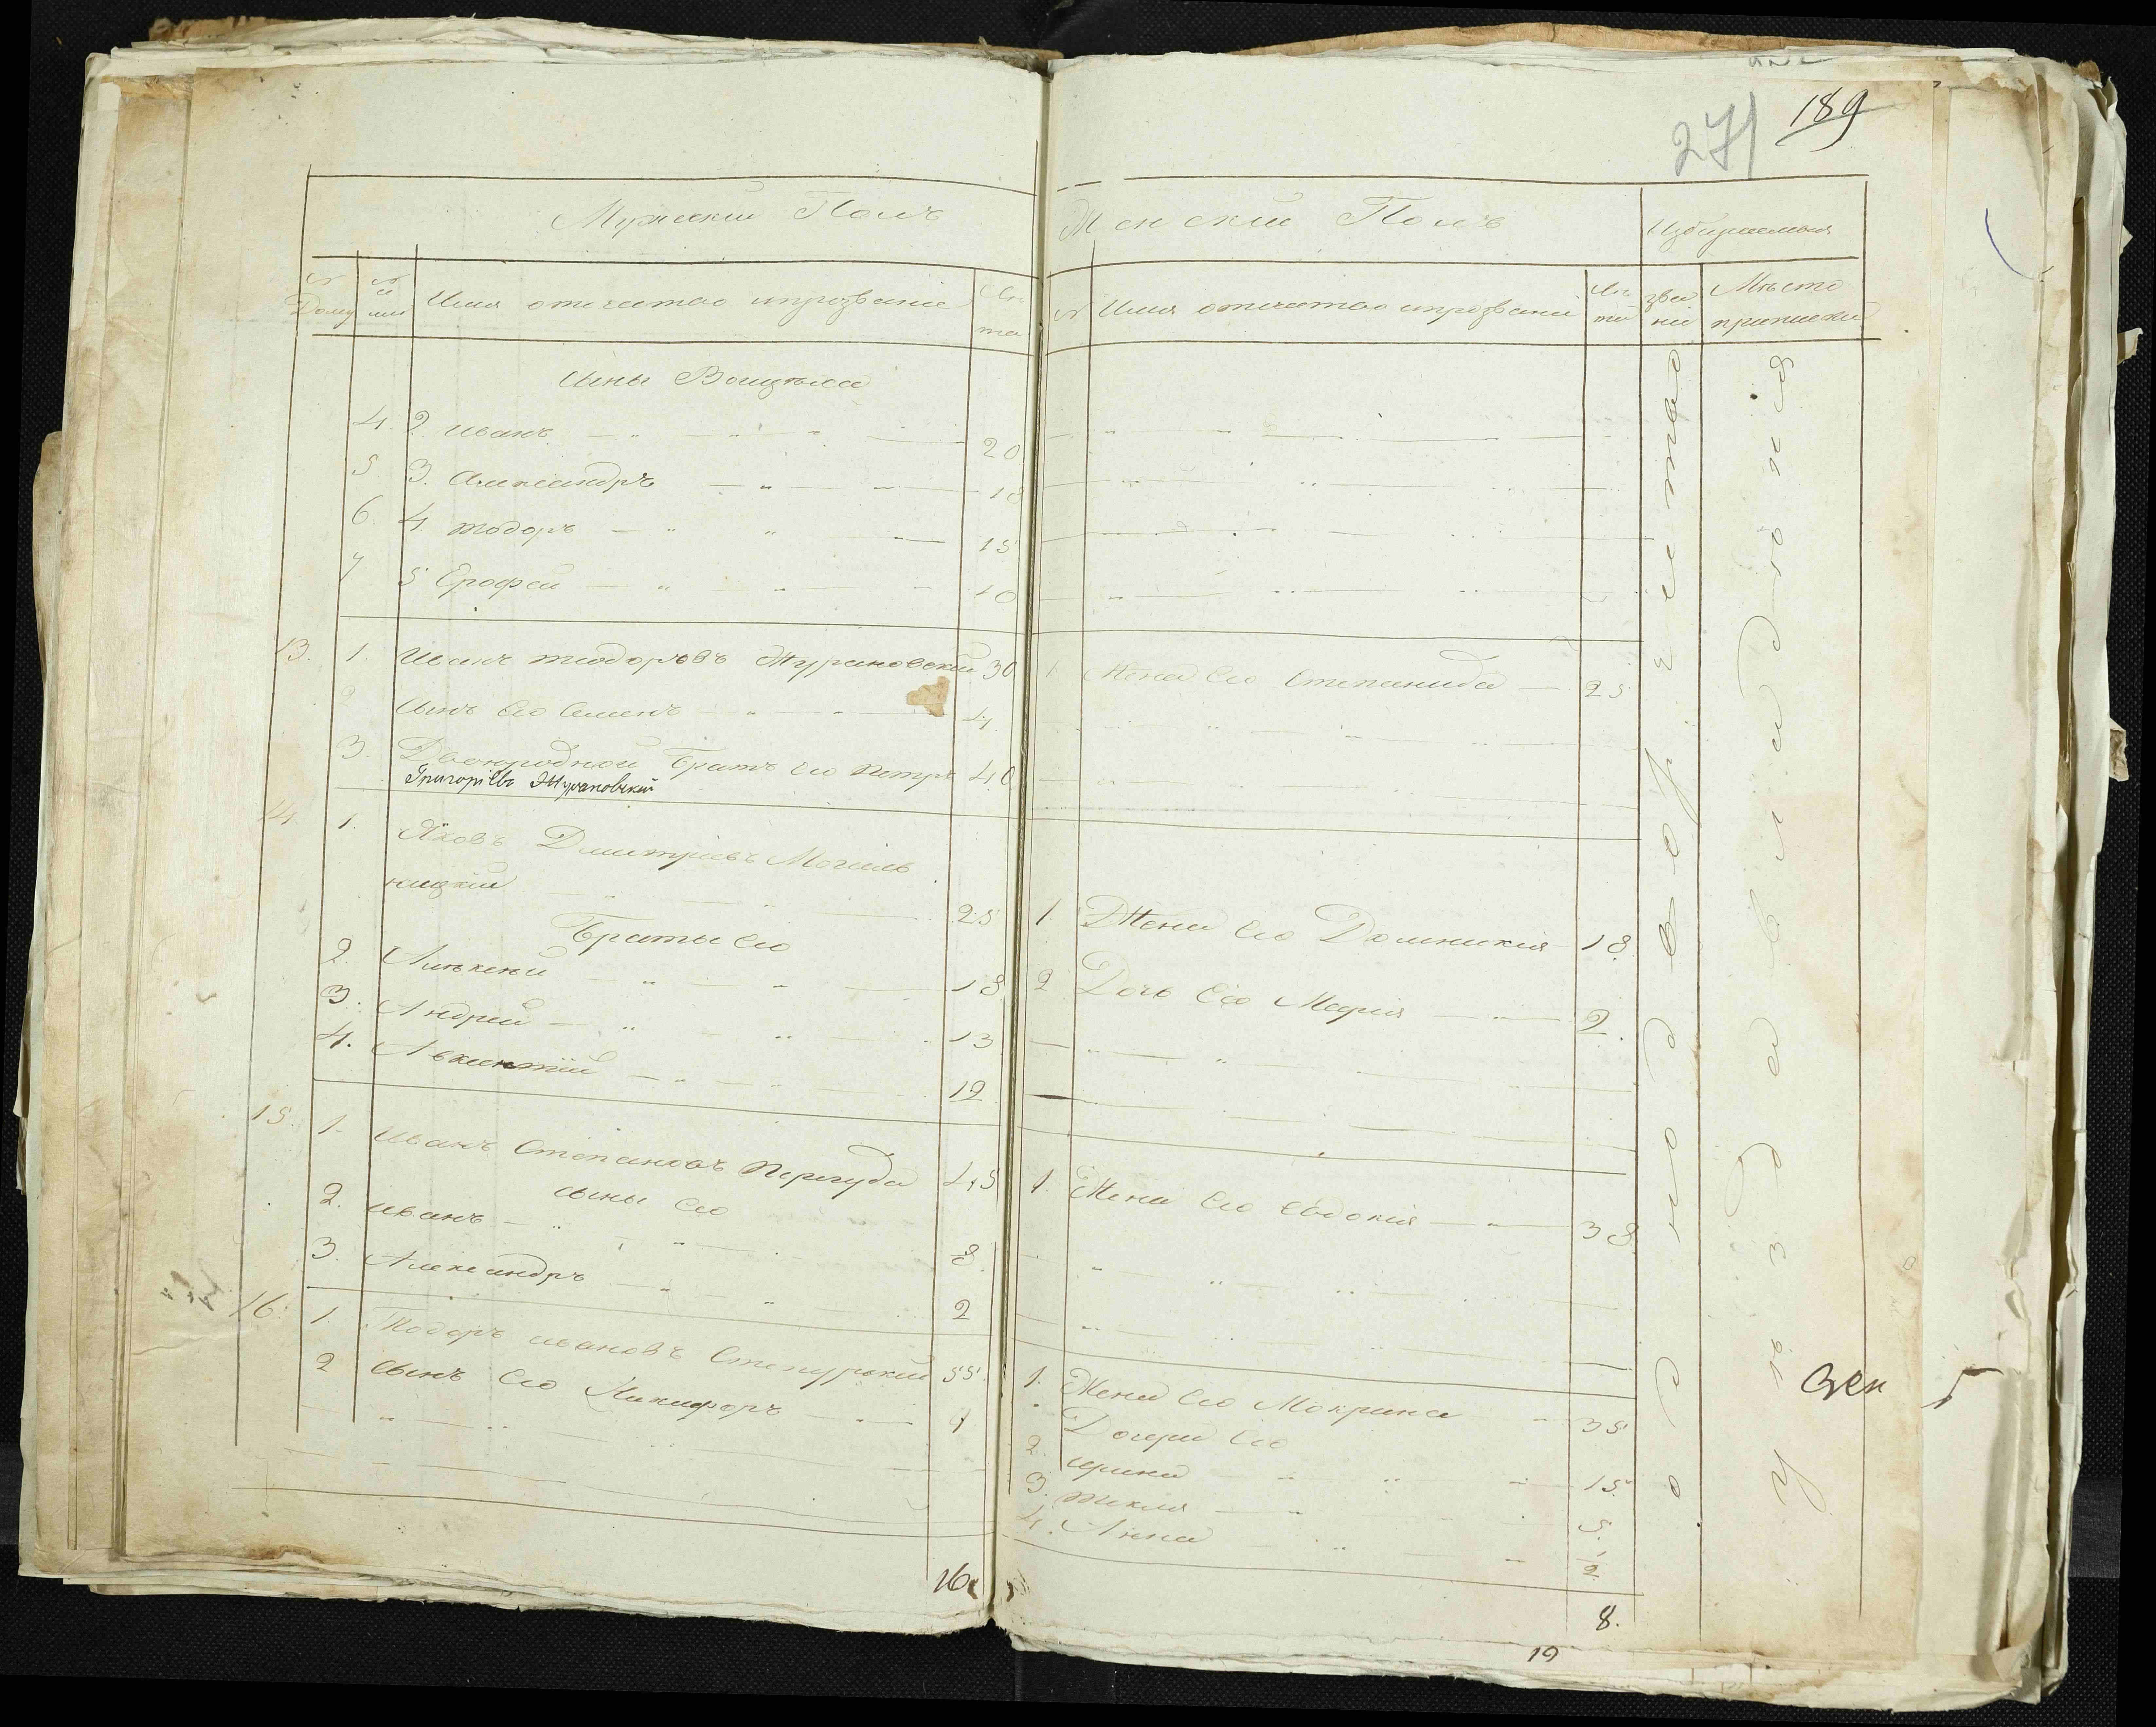 271 189
Мужескiй Полъ
№ Дому
№ 
Имя отечество и прозванiе
Лѣта
Сыны Воицѣха
4. 2 Иванъ 20
5 3. Александръ 18
6. 4 Тодоръ 15
7 5 Ерофей 10
13. 1. Иванъ Тиодоровъ Журановскiй 30
2 Сынъ Его Семенъ 4
3. Двоюродной Братъ Его Петръ 40
Григорiевъ Журановскiй
14 1. Яковъ Дмитрiевъ Могиль
ницкiй 25
Браты Его
2. Алѣксѣй 18
3. Андрей 13
4. Авксентiй 12
15. 1. Иванъ Степановъ Перегуда 45
Сыны Его
2. Иванъ 8
3. Александръ 2
16. 1. Тодоръ Ивановъ Степурскiй 55.
2 Сынъ Его Никифоръ 9
16
Женскiй Полъ
Избираемыя
№ Имя отечество и прозванiе
Лѣта
званiи
Мѣсто
приписки
1 Жена Его Степанида 25
1. Жена Его Домникiя 18.
2 Дочь Его Марiя 2.
1. Жена Его Евдокiя 38.
1. Жена Его Мокрина 35
Дочери Его
2. Ирина 15.
3. Текля 5.
4. Анна ½
8.
19
однодворчество
уѣзда
Зек